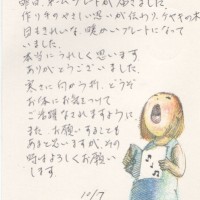 昨日、ネームプレートが届きました。
作り手のやさしい思いが伝わり、ケヤキの木
目もきれいな、暖かいプレートになって
いました。
本当にうれしく思います
ありがとうございました。
寒さに向かう折、どうぞ
お体にお気をつけて
ご活躍なされますように。
また、お願いすることも
あると思いますが、その
時はよろしくお願い
します。
10/7